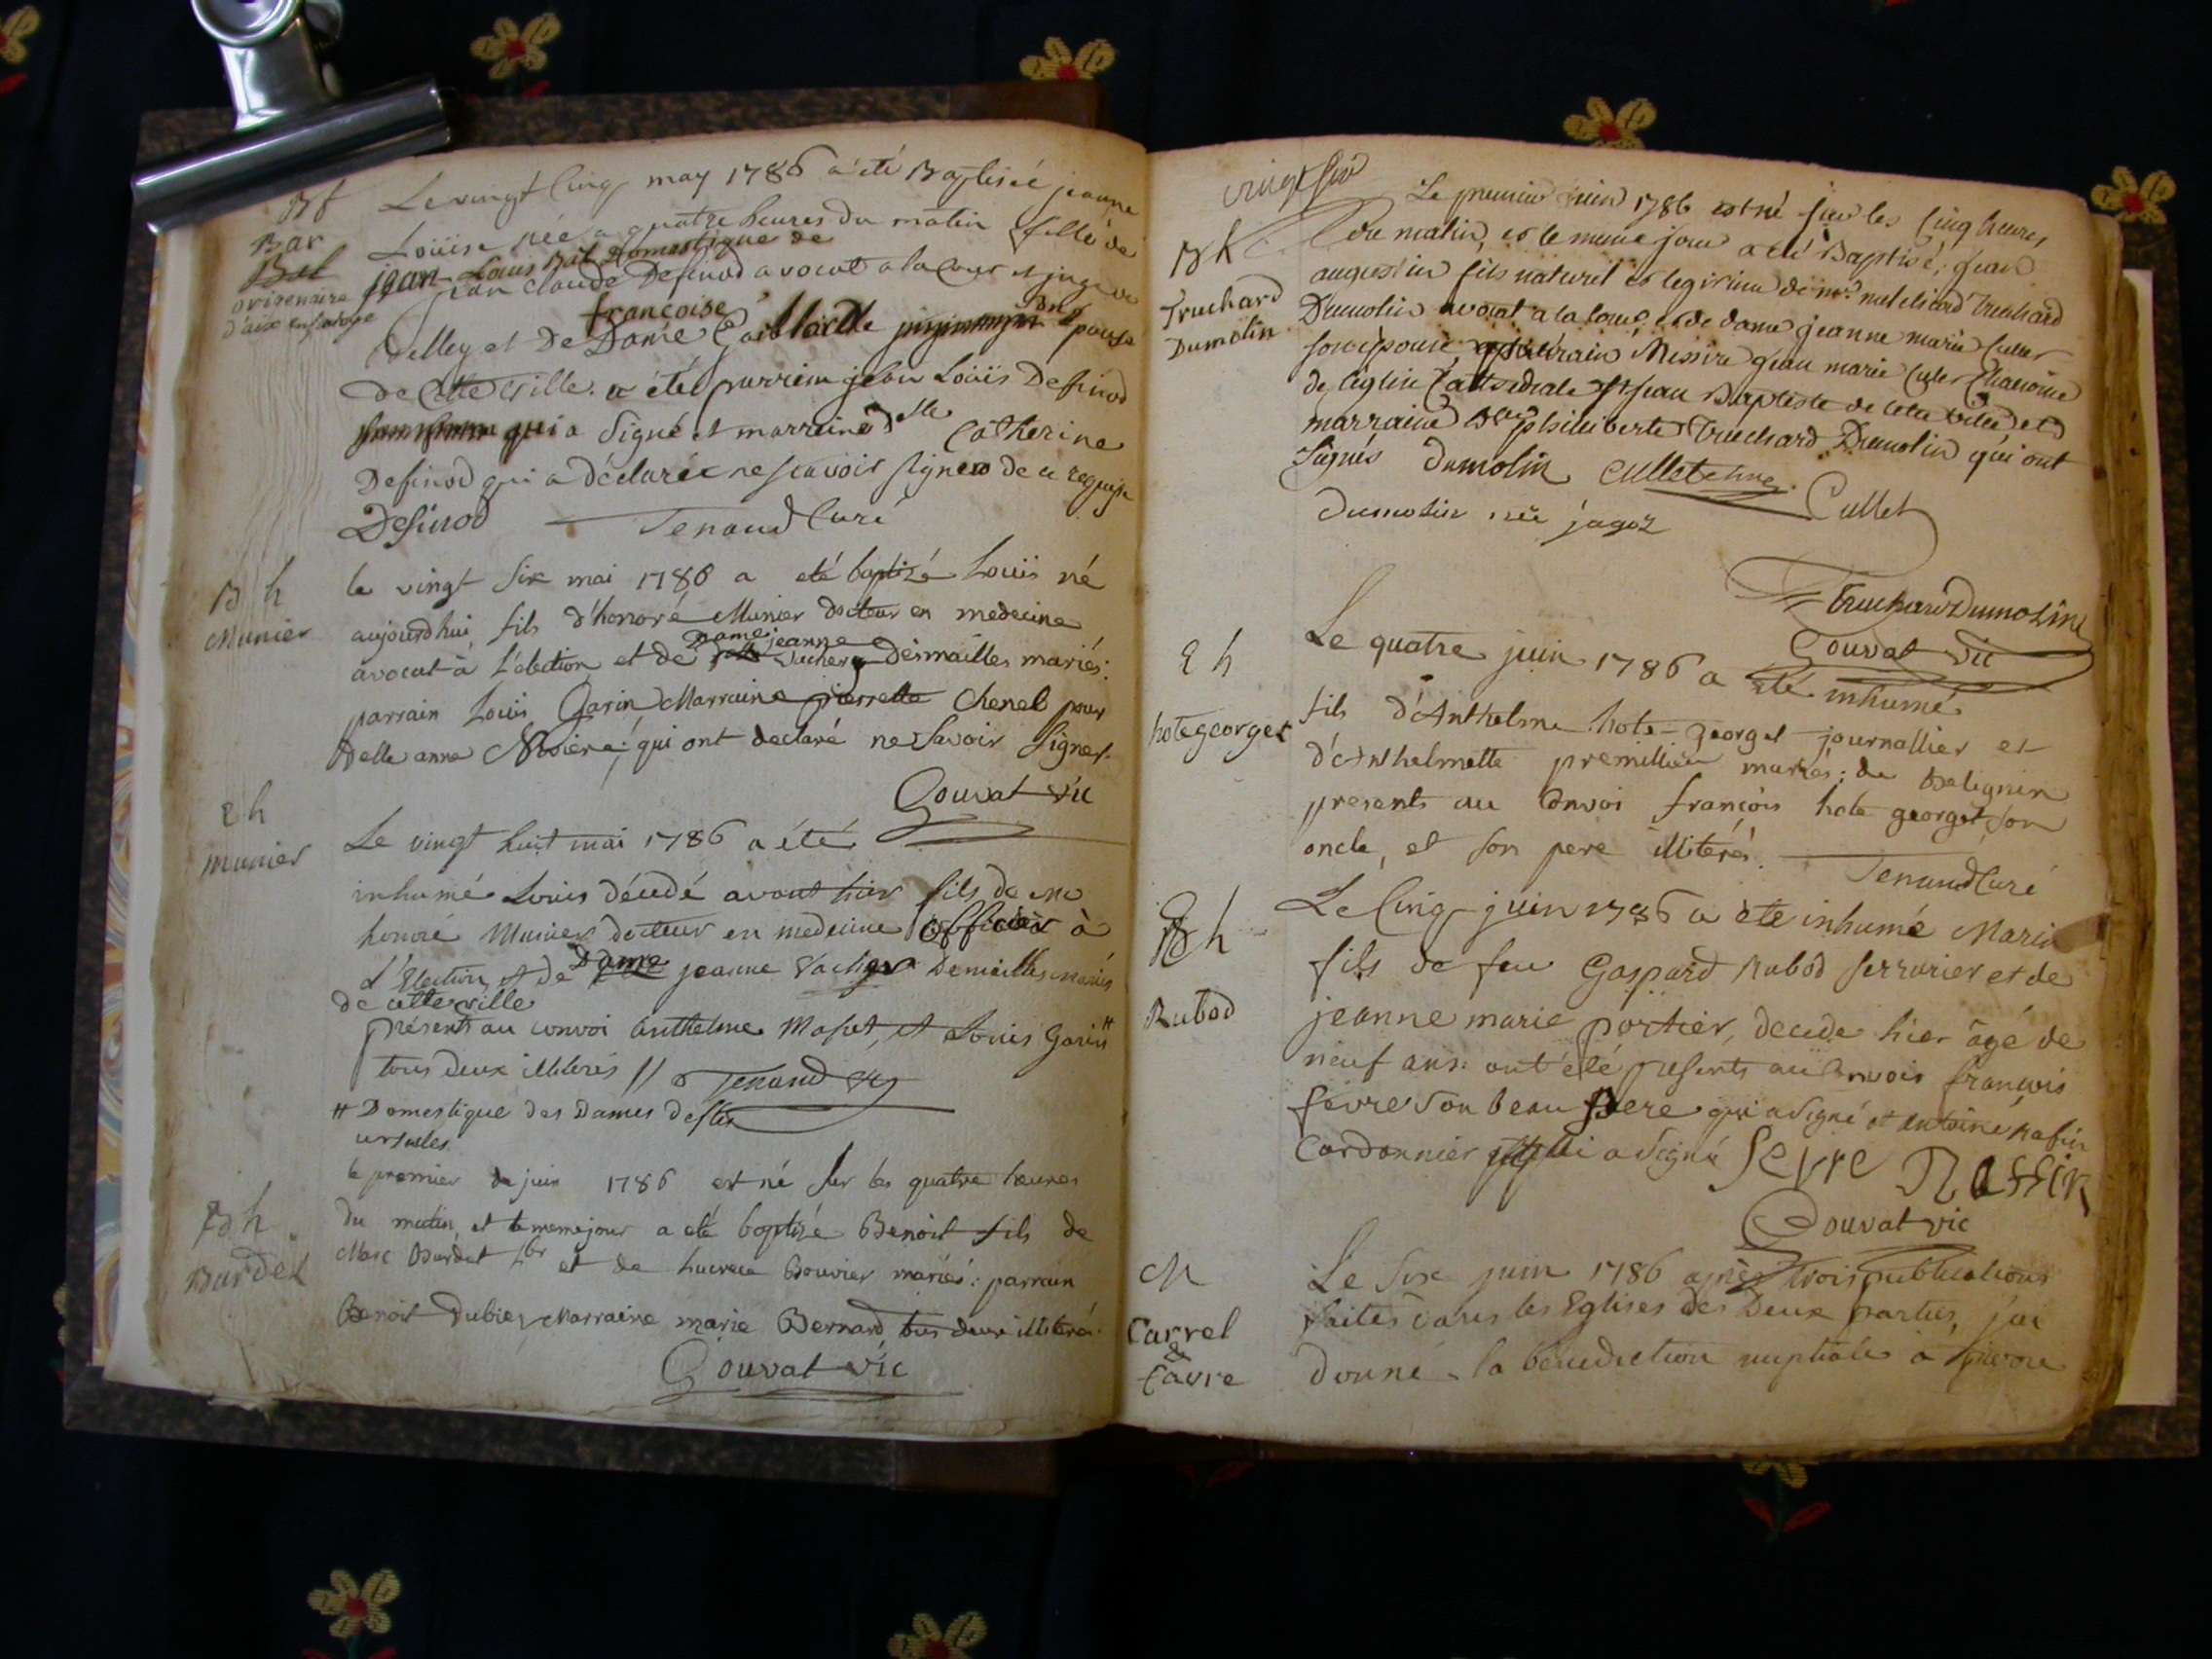 Bf
Bar
Bal
originaire
d'aix en savoye
Le vingt Cinq may 1786 a été Baptisée jeanne
Loüise née a quatre heures du matin fille de
jean Louis Bal Domestique de
jean claude Desinod avocat a la Cour et juge de
françoise
velley et De Dame épouse
de Cette ville. a été parrein jean Loüis Desinod
qui a Signé et marreine delle Catherine
Desinod qui a déclarée ne scavoir signer de ce requise
Desinod Tenand Curé
B h
Munier
le vingt Six mai 1786 a eté baptizé Louis né
aujourdhui fils d'honoré Munier docteur en medecine
avocat à l'élection et de Dame jeanne Vachery Desmailles mariés:
parrain Louis Garin Marraine pierrette Chenel pour
Delle anne qui ont declaré ne Savoir Signer.
Gouvat vic
E h
munier
Le vingt huit mai 1786 a été
inhumé Louis décédé avant hier fils de Me
honoré Munier docteur en medecine officier à
l'Election et de Dame jeanne Demailles mariés
de cette ville
présents au convoi Anthelme Mafset, et Louis Garin #
tous deux illiteres // Tenand
# Domestique des Dames de Ste
ursules
B h
Bardet
le premier de juin 1786 est né sur les quatre heures
du matin, et le meme jour a eté baptizé Benoit fils de
Marc Bardet et de Lucrece Bouvier mariés: parrain
Benoit Dubiez Marraine marie Bernard tous deux illiterés.
Gouvat vic
vingt six
B h
Truchard
Dumolin
Le premier juin 1786 est né sur les Cinq heures
du matin, et le meme jour a été Baptisé, jean
augustin fils naturel et legitime de mr. Truchard
Dumolin avocat a la Cour, et de dame jeanne marie Cullet
son épouse, parrain Messire jean marie Cullet Chanoine
de l'église Cathedrale St jean Baptiste de cette ville, et
marraine Dlle philiberte Truchard Dumolin qui ont
Signés Dumolin Cullet
Dumolin née jagoz Cullet
Truchard Dumolin
Gouvat vic
E h
hotegeorget
Le quatre juin 1786 a été inhumé
fils d'Anthelme hote-georget journallier et
d'Anthelmette premillieu mariés; de Belignin
presents au Convoi françois hote georget son
oncle, et son pere illiterés. Tenand Curé
E h
Rubod
Le Cinq juin 1786 a eté inhumé Marin
fils de feu Gaspard Rubod Serrurier et de
jeanne marie portier, decede hier âgé de
neuf ans: ont été presents au Convois françois
fevre son beau pere qui a Signé et antoine Rafin
Cordonnier qui a Signé fevre Raffin
Gouvat vic
M
Carrel
&
favre
Le Six juin 1786 après trois publications
faites dans les Eglises des Deux parties, j'ai
donné la bénédiction nuptiale à pierre